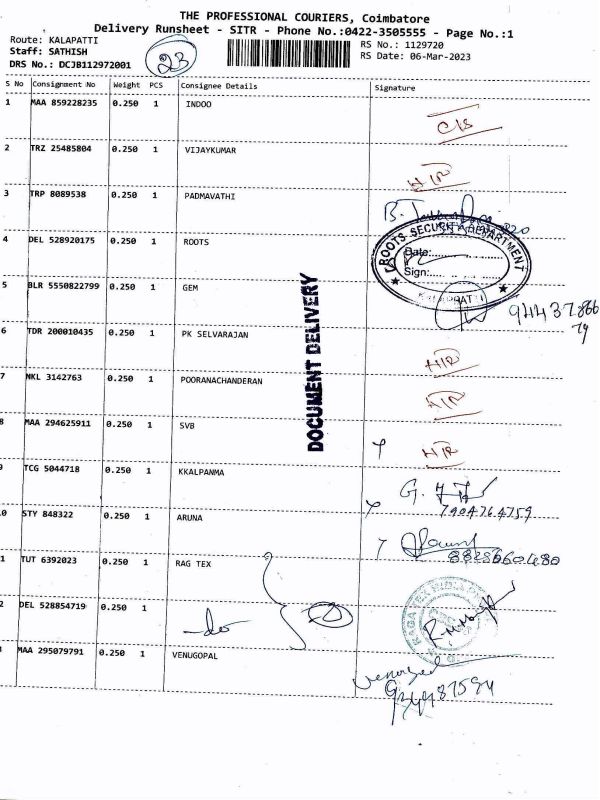 THE PROFESSIONAL COURIERS, Coimbatore
Delivery Runsheet - SITR - Phone No.:0422-3505555 - Page No.:1
Route: KALAPATTI
Staff: SATHISH
DRS No.: DCJB112972001
23
RS No.: 1129720
RS Date: 06-Mar-2023
S No Consignment No Weight PCS Consignee Details Signature
1 MAA 859228235 0.250 1 INDOO
2 TRZ 25485804 0.250 1 VIJAYKUMAR H/R
3 TRP 8089538 0.250 1 PADMAVATHI
4 DEL 528920175 0.250 1 ROOTS
ROOTS SECURITY DEPARTMENT
Date:
Sign:
KALAPPATTI
5 BLR 5550822799 0.250 1 GEM
6 TDR 200010435 0.250 1 PK SELVARAJAN H/R
7 NKL 3142763 0.250 1 POORANACHANDERAN H/R
8 MAA 294625911 0.250 1 SVB H/R
DOCUMENT DELIVERY
9 TCG 5044718 0.250 1 KKALPANMA
7904764759
0 STY 848322 0.250 1 ARUNA
8825660480
1 TUT 6392023 0.250 1 RAG TEX
2 DEL 528854719 0.250 1 -do
MAA 295079791 0.250 1 VENUGOPAL